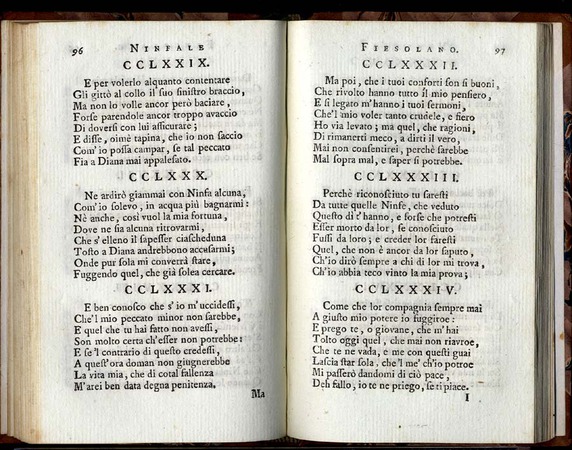 96 NINFALE
CCLXXIX.
E per volerlo alquanto contentare
Gli gittò al collo il suo sinistro braccio,
Ma non lo volle ancor però baciare,
Forse parendole ancor troppo avaccio
Di doversi con lui assicurare;
E disse, oimè tapina, che io non saccio
Com'io possa campar, se tal peccato
Fia a Diana mai appalesato.
CCLXXX.
Ne ardirò giammai con Ninfa alcuna,
Com'io solevo, in acqua più bagnarmi:
Nè anche, così vuol la mia fortuna,
Dove ne sia alcuna ritrovarmi,
Che s'elleno il sapesser ciascheduna
Tosto a Diana andrebbono accusarmi;
Onde pur sola mi converrà stare,
Fuggendo quel, che già solea cercare.
CCLXXXI.
E ben conosco che s'io m'uccidessi,
Che'l mio peccato minor non sarebbe,
E quel che tu hai fatto non avessi,
Son molto certa ch'esser non potrebbe:
E se'l contrario di questo credessi,
A quest'ora doman non giugnerebbe
La vita mia, che di cotal fallenza
M'arei ben data degna penitenza.
Ma
FIESOLANO. 97
CCLXXXII.
Ma poi, che i tuoi conforti son sì buoni,
Che rivolto hanno tutto il mio pensiero,
E sì legato m'hanno i tuoi sermoni,
Che'l mio voler tanto crudele, e fiero
Ho via levato; ma quel, che ragioni,
Di rimanersi meco, a dirti il vero,
Mai non consentirei, perchè sarebbe
Mal sopra mal, e saper si potrebbe.
CCLXXXIII.
Perchè riconosciuto tu saresti
Da tutte quelle Ninfe, che veduto
Questo dì t'hanno, e forse che potresti
Esser morto da lor, se conosciuto
Fussi da loro; e creder lor faresti
Quel, che non è ancor da lor saputo,
Ch'io dirò sempre a chi di lor mi trova,
Ch'io abbia teco vinto la mia prova;
CCLXXXIV.
Come che lor compagnia sempre mai
A giusto mio potere io fuggiroe:
E prego te, o giovane, che m'hai
Tolto oggi quel, che mai non riavroe,
Che te ne vada, e me con questi guai
Lascia star sola, che'l me' ch'io potroe
Mi passerò dandomi di ciò pace,
Deh fallo, io te ne priego, se ti piace.
I